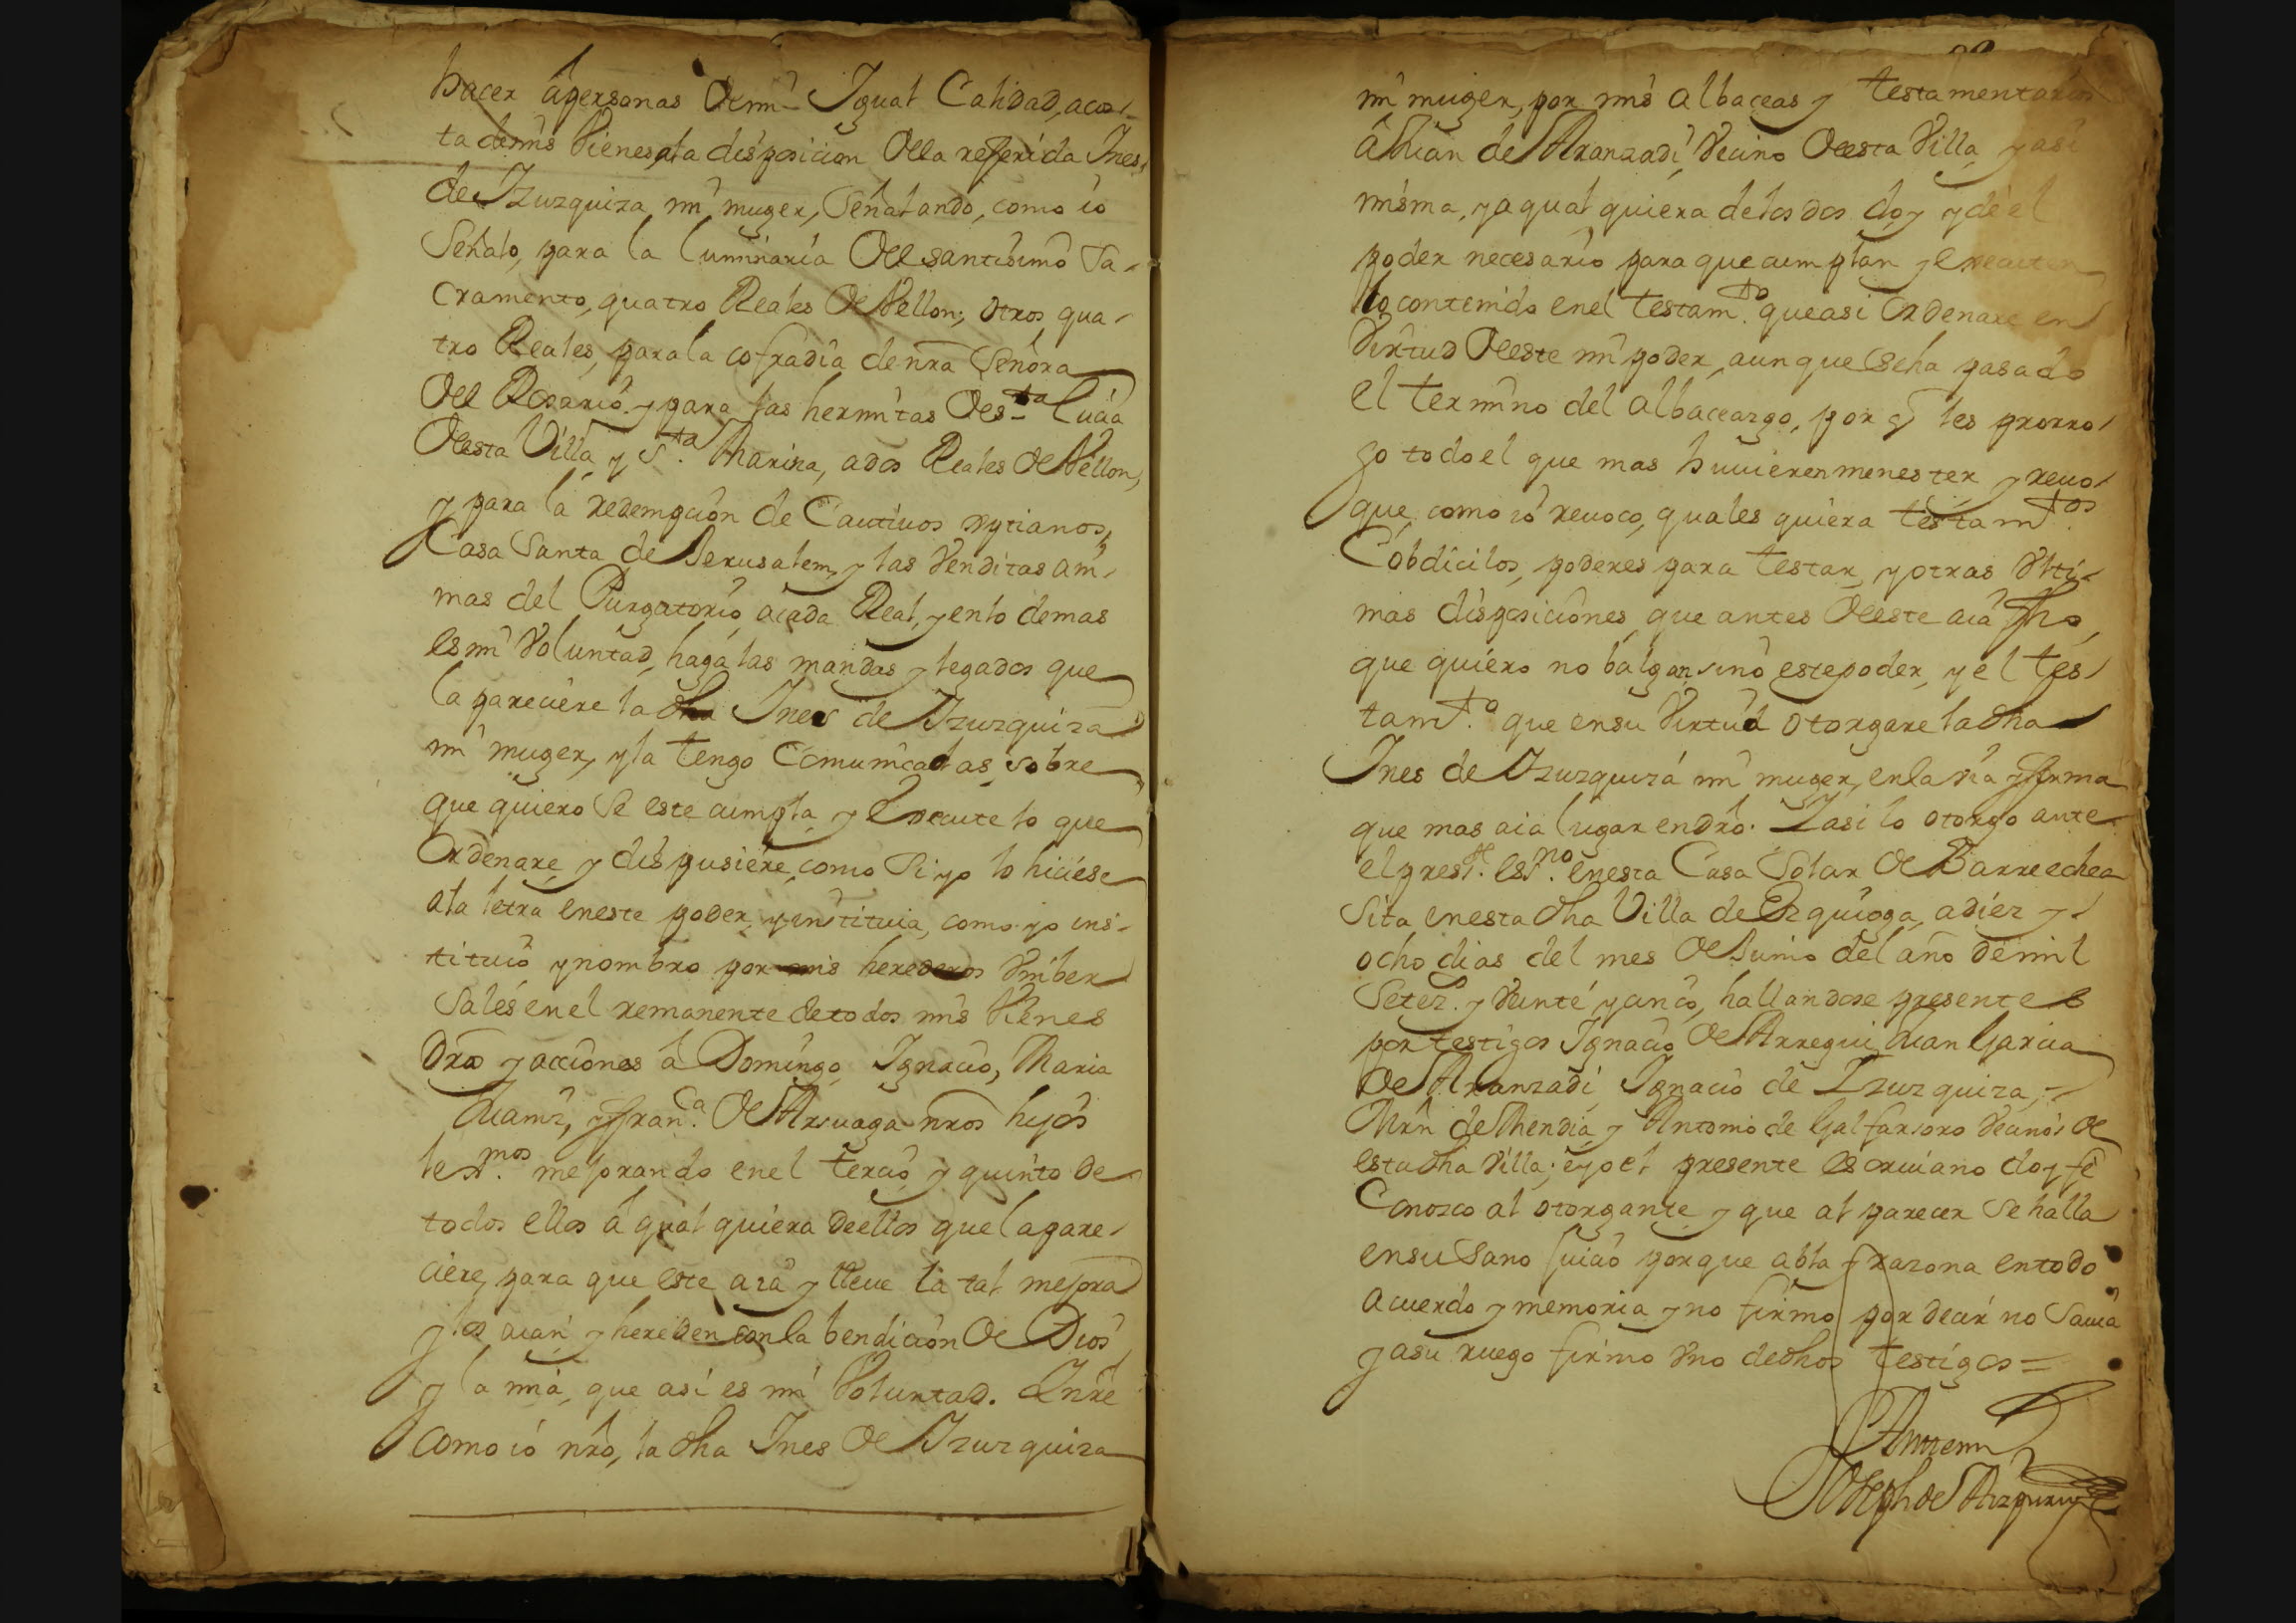 hacer â personas de mi Igual Calidad, acos-
ta demis Vienes, ala disposicion dela referida Ines
de Izuzquiza mi muger, Señalando, como io
Señalo, para la luminaria del santisimo Sa-
cramento, quatro Reales de Vellon; otros qua-
tro Reales, parala cofradia de nrã Señora
del Rosario, y para las hermitas de s.ta Lucia
desta Villa, y S.ta Marina, ados Reales de Vellon,
y para la redempcion de Cautivos xptianos,
Casa Santa de Jerusalem, y las Venditas ani-
mas del Purgatorio, acada Real, y enlo demas
es mi Voluntad, haga las mandas y legados que
la pareciere la dha Ines de Izuzquiza
mi muger, y la tengo Comunicadas, sobre
que quiero Se este cumpla, y Execute lo que
Ordenare, y dispusiere, como Si yo lo hiciese
ala letra eneste poder, y instituia, como yo ins-
tituio ynombro por mis herederos Vniber
Sales enel remanente detodos mis Vienes
dros y acciones â Domingo, Ignacio, Maria
Juana, y Fran.ca de Arsuaga nros hijos
lex.mos mejorando enel tercio, y quinto de
todos ellos â qual quiera deellos que la pare-
ciere, para que este aia y lleve la tal mejora
y los aian y hereden con la bendicion de Dios
y la mia, que asi es mi Voluntad. Inrê
Como io nrô, la dha Ines de Izuzquiza
mi muger, por mis albaceas y testamentarios
â Juan de Aranzadi, Vecino deesta Villa, y asi
misma, ya qual quiera delos dos doy y dê el
poder necesario para que cumplan y Executen
lo contenido enel testam.to queasi Ordenare en
Virtud deeste mi poder, aunque Seha pasado
el termino del albaceazgo, por q̃ les prorro-
go todo el que mas huvieren menester y revo-
que, como iô revoco, quales quiera testam.tos
Cobdicilos, poderes para testar, y otras Vlti-
mas disposiciones, que antes deeste aia fho,
que quiero no balgan sino este poder, y el tes-
tam.to que ensu Virtud otorgare la dha
Ines de Izuzquizá mi muger, enla via y forma
que mas aia lugar endrô. Iasi lo otorgo ante
el pres.te es.no enesta Casa Solar de Barreechea
Sita enesta dha Villa de Ezquioga, adiez y
ocho dias del mes de Junio del año demil
Setez.s y Veinte y cinco, hallandose presentes
por testigos Ignacio de Arregui, Juan Garcia
de Aranzadi, Ignacio de Izuzquiza,
Mrñ de Mendia, y Antonio de Galfarsoro Vecinos de
esta dha Villa; e yo el presente escriuano doy fe
Conozco al otorgante, y que al parecer Se halla
ensu Sano Juicio porque abla y razona entodo
acuerdo y memoria y no firmo por decir no Savia
y asu ruego firmo Vno dedhos testigos =
Antemi
Joseph de Aizpuru